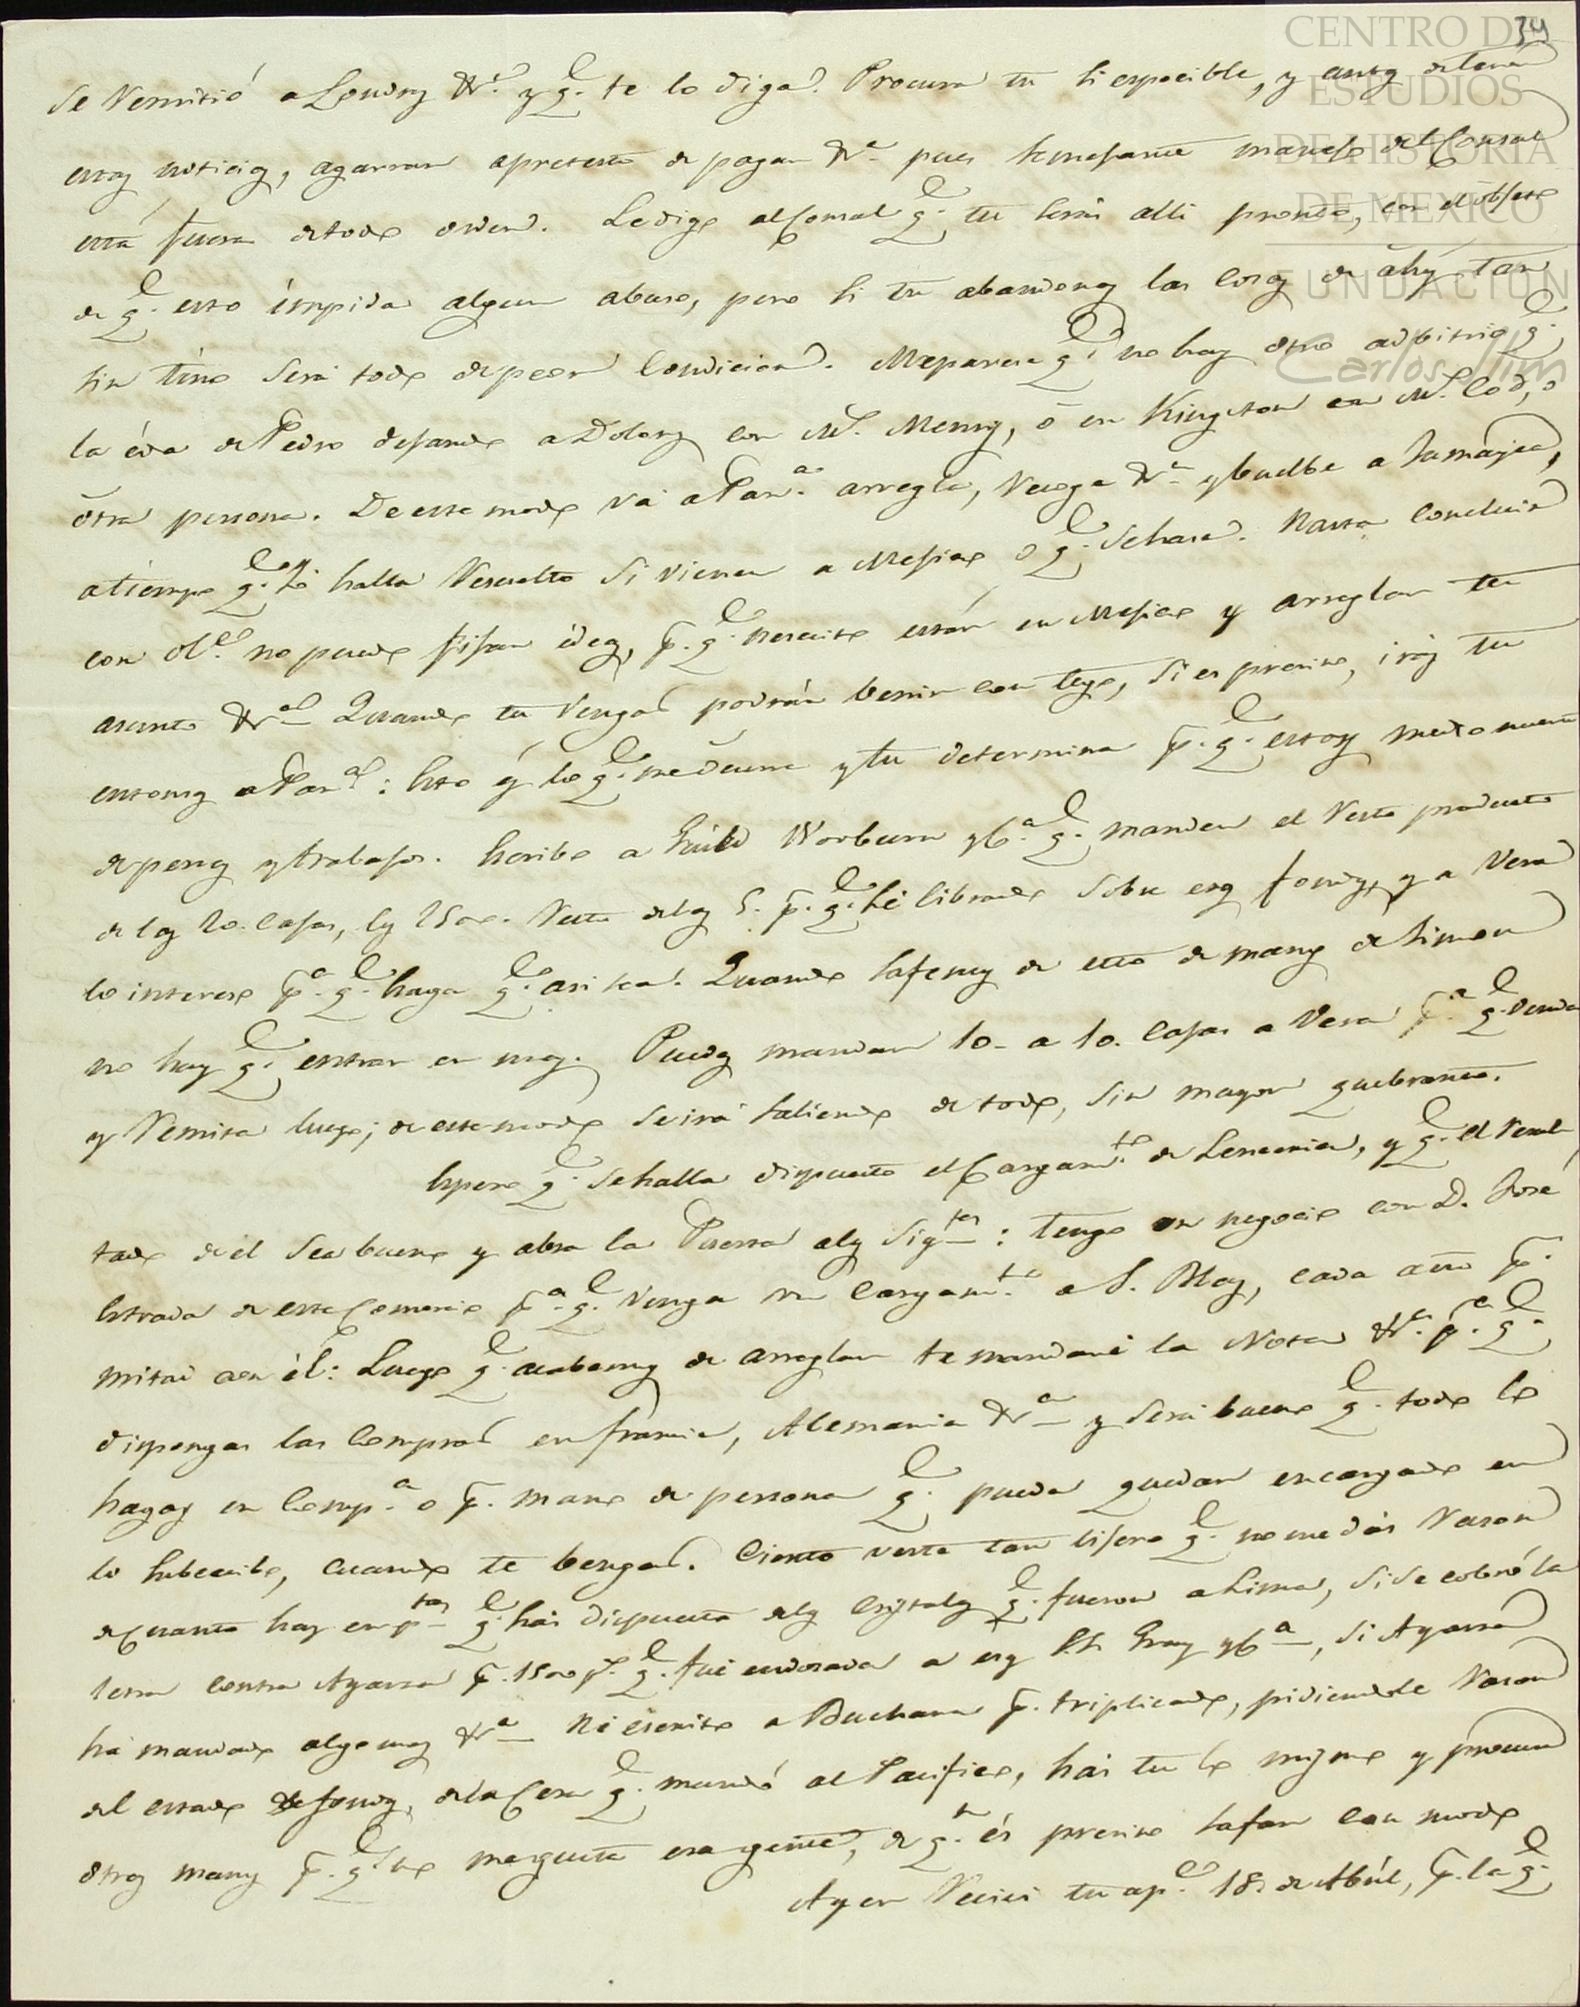 34
CENTRO DE
ESTUDIOS
DE HISTORIA
DE MEXICO
FUNDACIÓN
Carlos Slim
se Remitió a Londres &ª y q.e te lo diga. Procura tu si es pocible, y antes de tener
estas noticias, agarrar apretesto de pagar &ª pues semejante manejo del Consul
está fuera de todo orden. Le digo al Consul q.e tu serás alli pronto, con el objeto
de q.e esto impida algun abuso, pero si tu abandonas las cosas de ahy tan
sin tino será todo de peor condicion. Me parece q.e no hay otro adbitrio q.e
la ida de Pedro dejando a Dolores con M.r Henry, ó en Kingston con M.r Cod, o
ótra persona. De este modo vá a Pan.a arregla, recoge &ª y buelbe a Jamayca,
a tiempo q.e halla resuelto si vienen a Mejico o q.e se hace. Hasta concluir
con no puedo fijar ideas, p.r q.e necesito estar en Mejico y arreglar tu
asunto &ª Quando tu vengas podrán benir contigo, si es preciso, irás tu
entonces a Pan.a: esto és lo q.e me ocurre y tu determina p.r q.e estoy medio muerto
de penas y trabajos. Escribe a Worburn y C.a q.e manden el resto producto
de las 20. cajas, los 1500. resto de los 5. p.s q.e hé librado sobre esos fondos, y a Vera
lo intereso p.a q.e haga q.e asi sea. Quando safemos de esto de manos de Simon
no hay q.e entrar en mas. Puedes mandar 10- a 10. cajas a Vera p.a q.e venda
y remita luego; de este modo se irá saliendo de todo, sin mayor quebranto.
Espero q.e se halla dispuesto el Cargam.to de Lenceria, y q.e el resul
tado de él sea bueno y abra la Puerta a los sig.tes: tengo un negocio con D. José
Estrada de este Comercio p.a q.e venga un cargam.to a S. Blas, cada año p.r
mitad con él: Luego q.e acabemos de arreglar te mandaré la Nota &ª p.a q.e
dispongas las compras en francia, Alemania &ª y será bueno q.e todo lo
hagas en Comp.a o p.r mano de persona q.e pueda quedar encargado en
lo subcecibo, cuando te bengas. Ciento verte tan lijero q.e no me dás razon
de cuanto hay en p.tos q.e hás dispuesto de los cristales q.e fueron a Lima, si se cobró la
letra contra Ayarza p.r 1500 p.s q.e fué endosada a esos S.S. Gray y C.a, si Ayarza
há mandado algo mas &ª Hé escrito a Buchana p.r triplicado, pidiendole razon
del estado de fondos, de la Cera q.e mandó al Pacifico, hás tu lo mismo y procura
otras manos p.r q.e no me gusta esa gente, de q.n és preciso safar con modo
Ayer recivi tu ap.do 18. de Abril, p.r la q.e